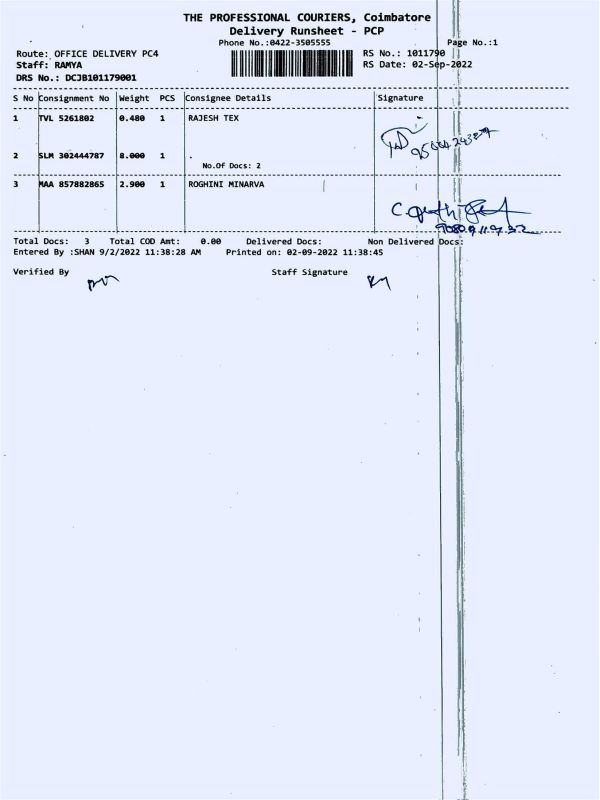 THE PROFESSIONAL COURIERS, Coimbatore
Delivery Runsheet - PCP
Phone No.:0422-3505555 Page No.:1
Route: OFFICE DELIVERY PC4 RS No.: 1011790
Staff: RAMYA RS Date: 02-Sep-2022
DRS No.: DCJB101179001
S No Consignment No Weight PCS Consignee Details Signature
1 TVL 5261802 0.480 1 RAJESH TEX
2 SLM 302444787 8.000 1 .
No.Of Docs: 2
3 MAA 857882865 2.900 1 ROGHINI MINARVA
Total Docs: 3 Total COD Amt: 0.00 Delivered Docs: Non Delivered Docs:
Entered By :SHAN 9/2/2022 11:38:28 AM Printed on: 02-09-2022 11:38:45
Verified By Staff Signature